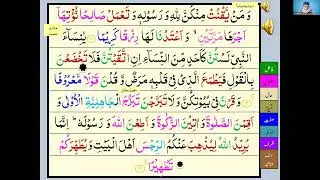 وَ مَنْ يَّقْنُتْ مِنْكُنَّ لِلّٰهِ وَ رَسُوْلِهٖ وَ تَعْمَلْ صَالِحًا نُّؤْتِهَاۤ
اَجْرَهَا مَرَّتَيْنِۙ وَ اَعْتَدْنَا لَهَا رِزْقًا كَرِيْمًا يٰنِسَآءَ
النَّبِيِّ لَسْتُنَّ كَاَحَدٍ مِّنَ النِّسَآءِ اِنِ اتَّقَيْتُنَّ فَلَا تَخْضَعْنَ
بِالْقَوْلِ فَيَطْمَعَ الَّذِيْ فِيْ قَلْبِهٖ مَرَضٌ وَّ قُلْنَ قَوْلًا مَّعْرُوْفًا
وَ قَرْنَ فِيْ بُيُوْتِكُنَّ وَ لَا تَبَرَّجْنَ تَبَرُّجَ الْجَاهِلِيَّةِ الْاُوْلٰى وَ
اَقِمْنَ الصَّلٰوةَ وَ اٰتِيْنَ الزَّكٰوةَ وَ اَطِعْنَ اللّٰهَ وَ رَسُوْلَهٗ اِنَّمَا
يُرِيْدُ اللّٰهُ لِيُذْهِبَ عَنْكُمُ الرِّجْسَ اَهْلَ الْبَيْتِ وَ يُطَهِّرَكُمْ
تَطْهِيْرًا